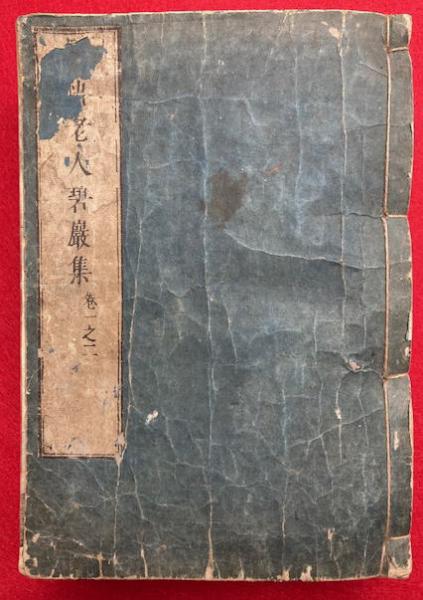 老人碧巖集 卷一之二